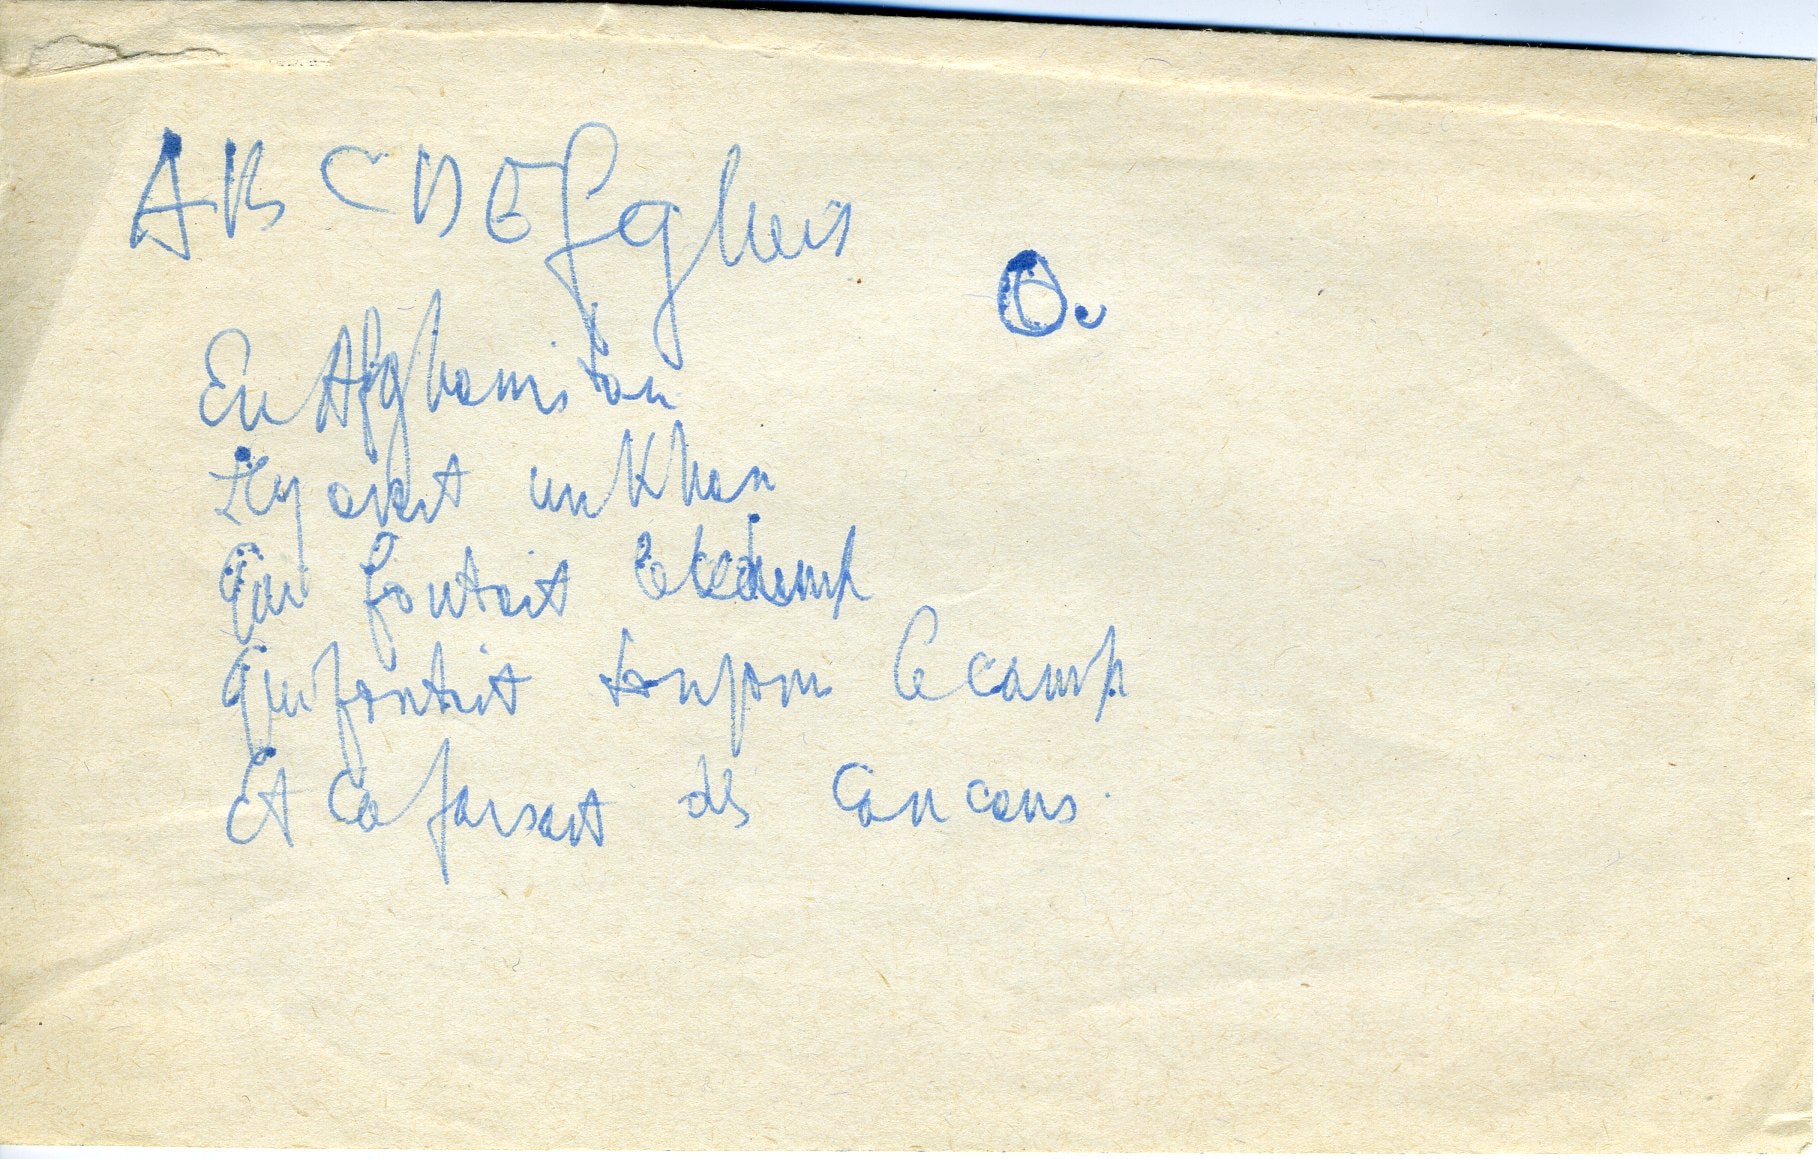 A B C D E f g heis
O.
En Afghanistan
Il y avait un Khan
Qui foutait le camp
Qui foutait toujours le camp
Et ça faisait des cancans.